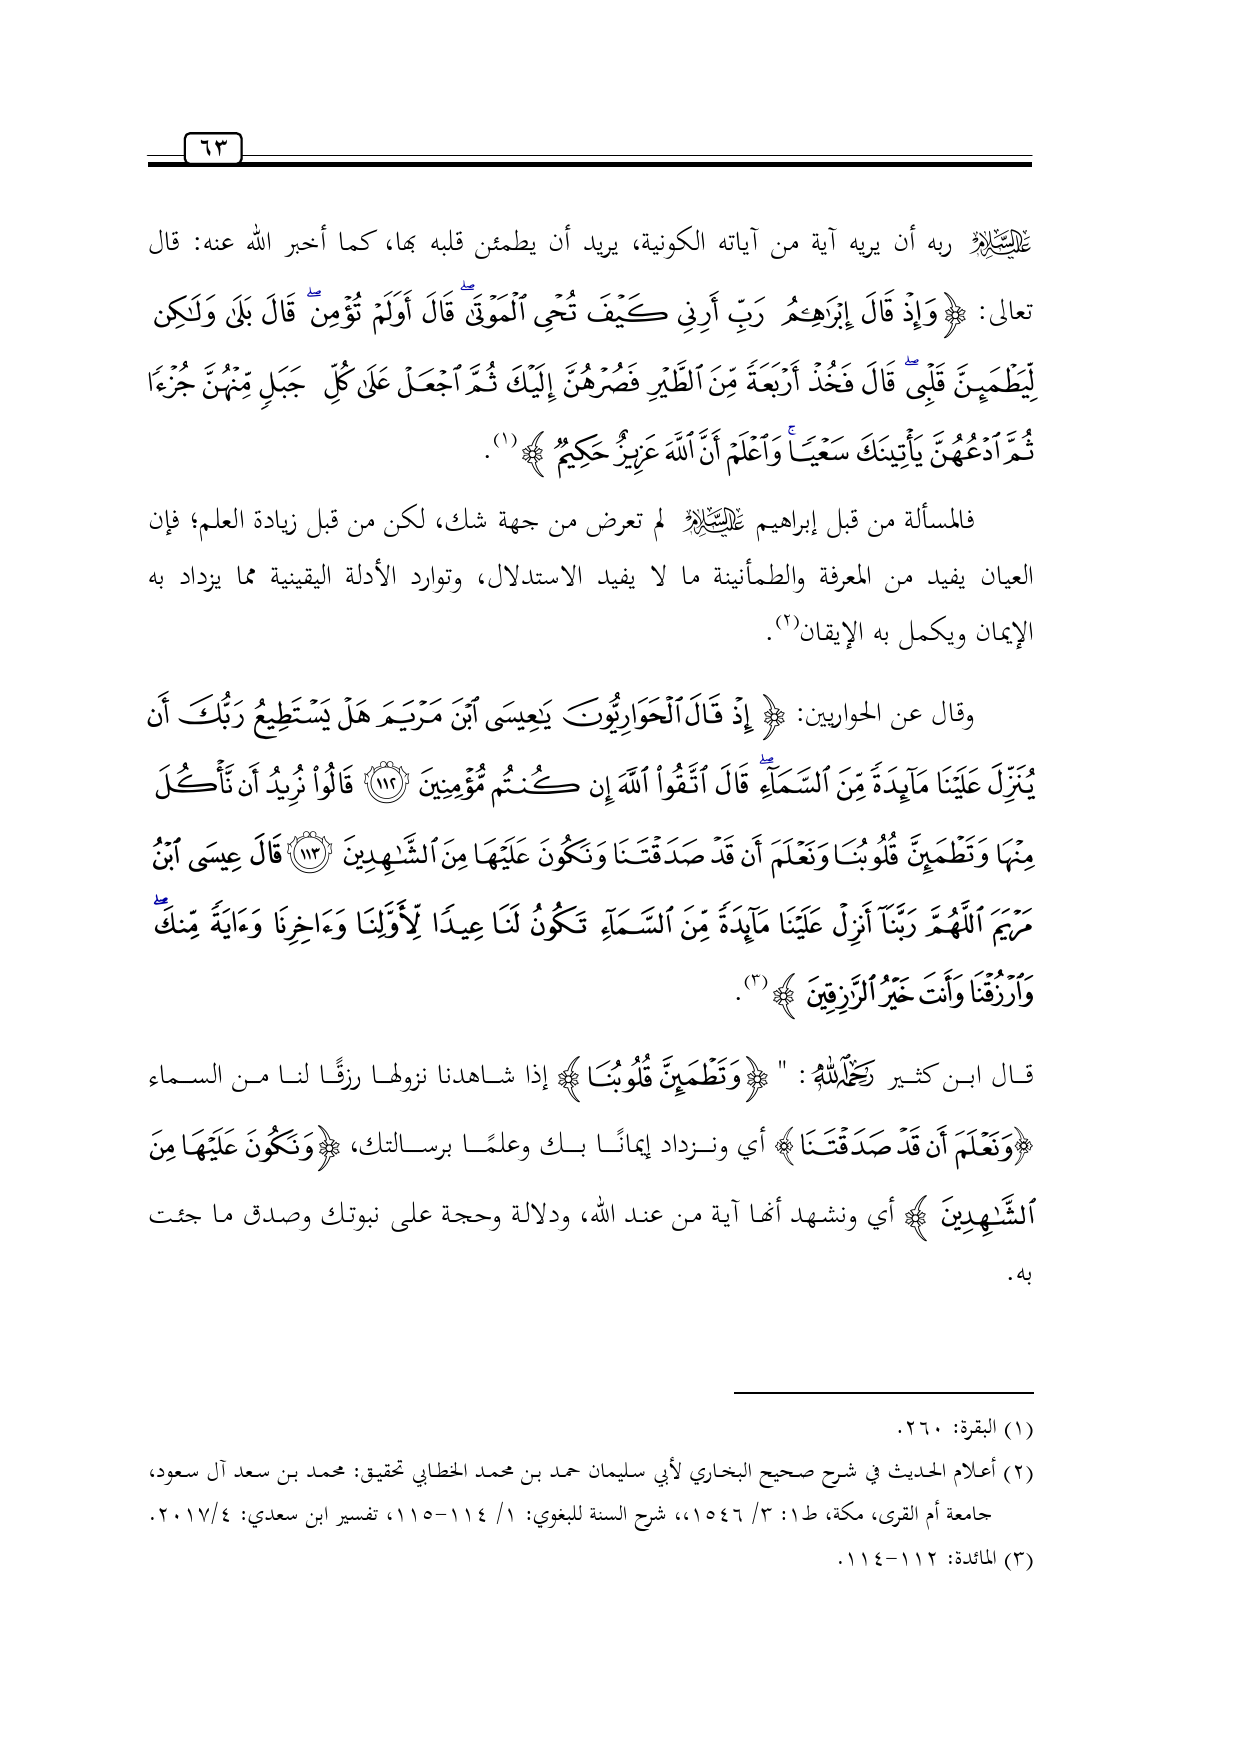 ٦٣
عليه السلام ربه أن يريه آية من آياته الكونية، يريد أن يطمئن قلبه بها، كما أخبر الله عنه: قال
تعالى: ﴿ وَإِذْ قَالَ إِبْرَٰهِـۧمُ رَبِّ أَرِنِى كَيْفَ تُحْىِ ٱلْمَوْتَىٰ ۖ قَالَ أَوَلَمْ تُؤْمِن ۖ قَالَ بَلَىٰ وَلَـٰكِن
لِّيَطْمَئِنَّ قَلْبِى ۖ قَالَ فَخُذْ أَرْبَعَةً مِّنَ ٱلطَّيْرِ فَصُرْهُنَّ إِلَيْكَ ثُمَّ ٱجْعَلْ عَلَىٰ كُلِّ جَبَلٍ مِّنْهُنَّ جُزْءًا
ثُمَّ ٱدْعُهُنَّ يَأْتِينَكَ سَعْيًا ۚ وَٱعْلَمْ أَنَّ ٱللَّهَ عَزِيزٌ حَكِيمٌ ﴾ (١).
فالمسألة من قبل إبراهيم عليه السلام لم تعرض من جهة شك، لكن من قبل زيادة العلم؛ فإن
العيان يفيد من المعرفة والطمأنينة ما لا يفيد الاستدلال، وتوارد الأدلة اليقينية مما يزداد به
الإيمان ويكمل به الإيقان(٢).
وقال عن الحواريين: ﴿ إِذْ قَالَ ٱلْحَوَارِيُّونَ يَـٰعِيسَى ٱبْنَ مَرْيَمَ هَلْ يَسْتَطِيعُ رَبُّكَ أَن
يُنَزِّلَ عَلَيْنَا مَآئِدَةً مِّنَ ٱلسَّمَآءِ ۖ قَالَ ٱتَّقُوا۟ ٱللَّهَ إِن كُنتُم مُّؤْمِنِينَ ﴿١١٢﴾ قَالُوا۟ نُرِيدُ أَن نَّأْكُلَ
مِنْهَا وَتَطْمَئِنَّ قُلُوبُنَا وَنَعْلَمَ أَن قَدْ صَدَقْتَنَا وَنَكُونَ عَلَيْهَا مِنَ ٱلشَّـٰهِدِينَ ﴿١١٣﴾ قَالَ عِيسَى ٱبْنُ
مَرْيَمَ ٱللَّهُمَّ رَبَّنَآ أَنزِلْ عَلَيْنَا مَآئِدَةً مِّنَ ٱلسَّمَآءِ تَكُونُ لَنَا عِيدًا لِّأَوَّلِنَا وَءَاخِرِنَا وَءَايَةً مِّنكَ ۖ
وَٱرْزُقْنَا وَأَنتَ خَيْرُ ٱلرَّٰزِقِينَ ﴾ (٣).
قال ابن كثير رحمه الله: " ﴿ وَتَطْمَئِنَّ قُلُوبُنَا ﴾ إذا شاهدنا نزولها رزقًا لنا من السماء
﴿وَنَعْلَمَ أَن قَدْ صَدَقْتَنَا﴾ أي ونزداد إيمانًا بك وعلمًا برسالتك، ﴿وَنَكُونَ عَلَيْهَا مِنَ
ٱلشَّـٰهِدِينَ ﴾ أي ونشهد أنها آية من عند الله، ودلالة وحجة على نبوتك وصدق ما جئت
به.
(١) البقرة: ٢٦٠.
(٢) أعلام الحديث في شرح صحيح البخاري لأبي سليمان حمد بن محمد الخطابي تحقيق: محمد بن سعد آل سعود،
جامعة أم القرى، مكة، ط١: ٣/ ١٥٤٦،، شرح السنة للبغوي: ١/ ١١٤-١١٥، تفسير ابن سعدي: ٢٠١٧/٤.
(٣) المائدة: ١١٢-١١٤.